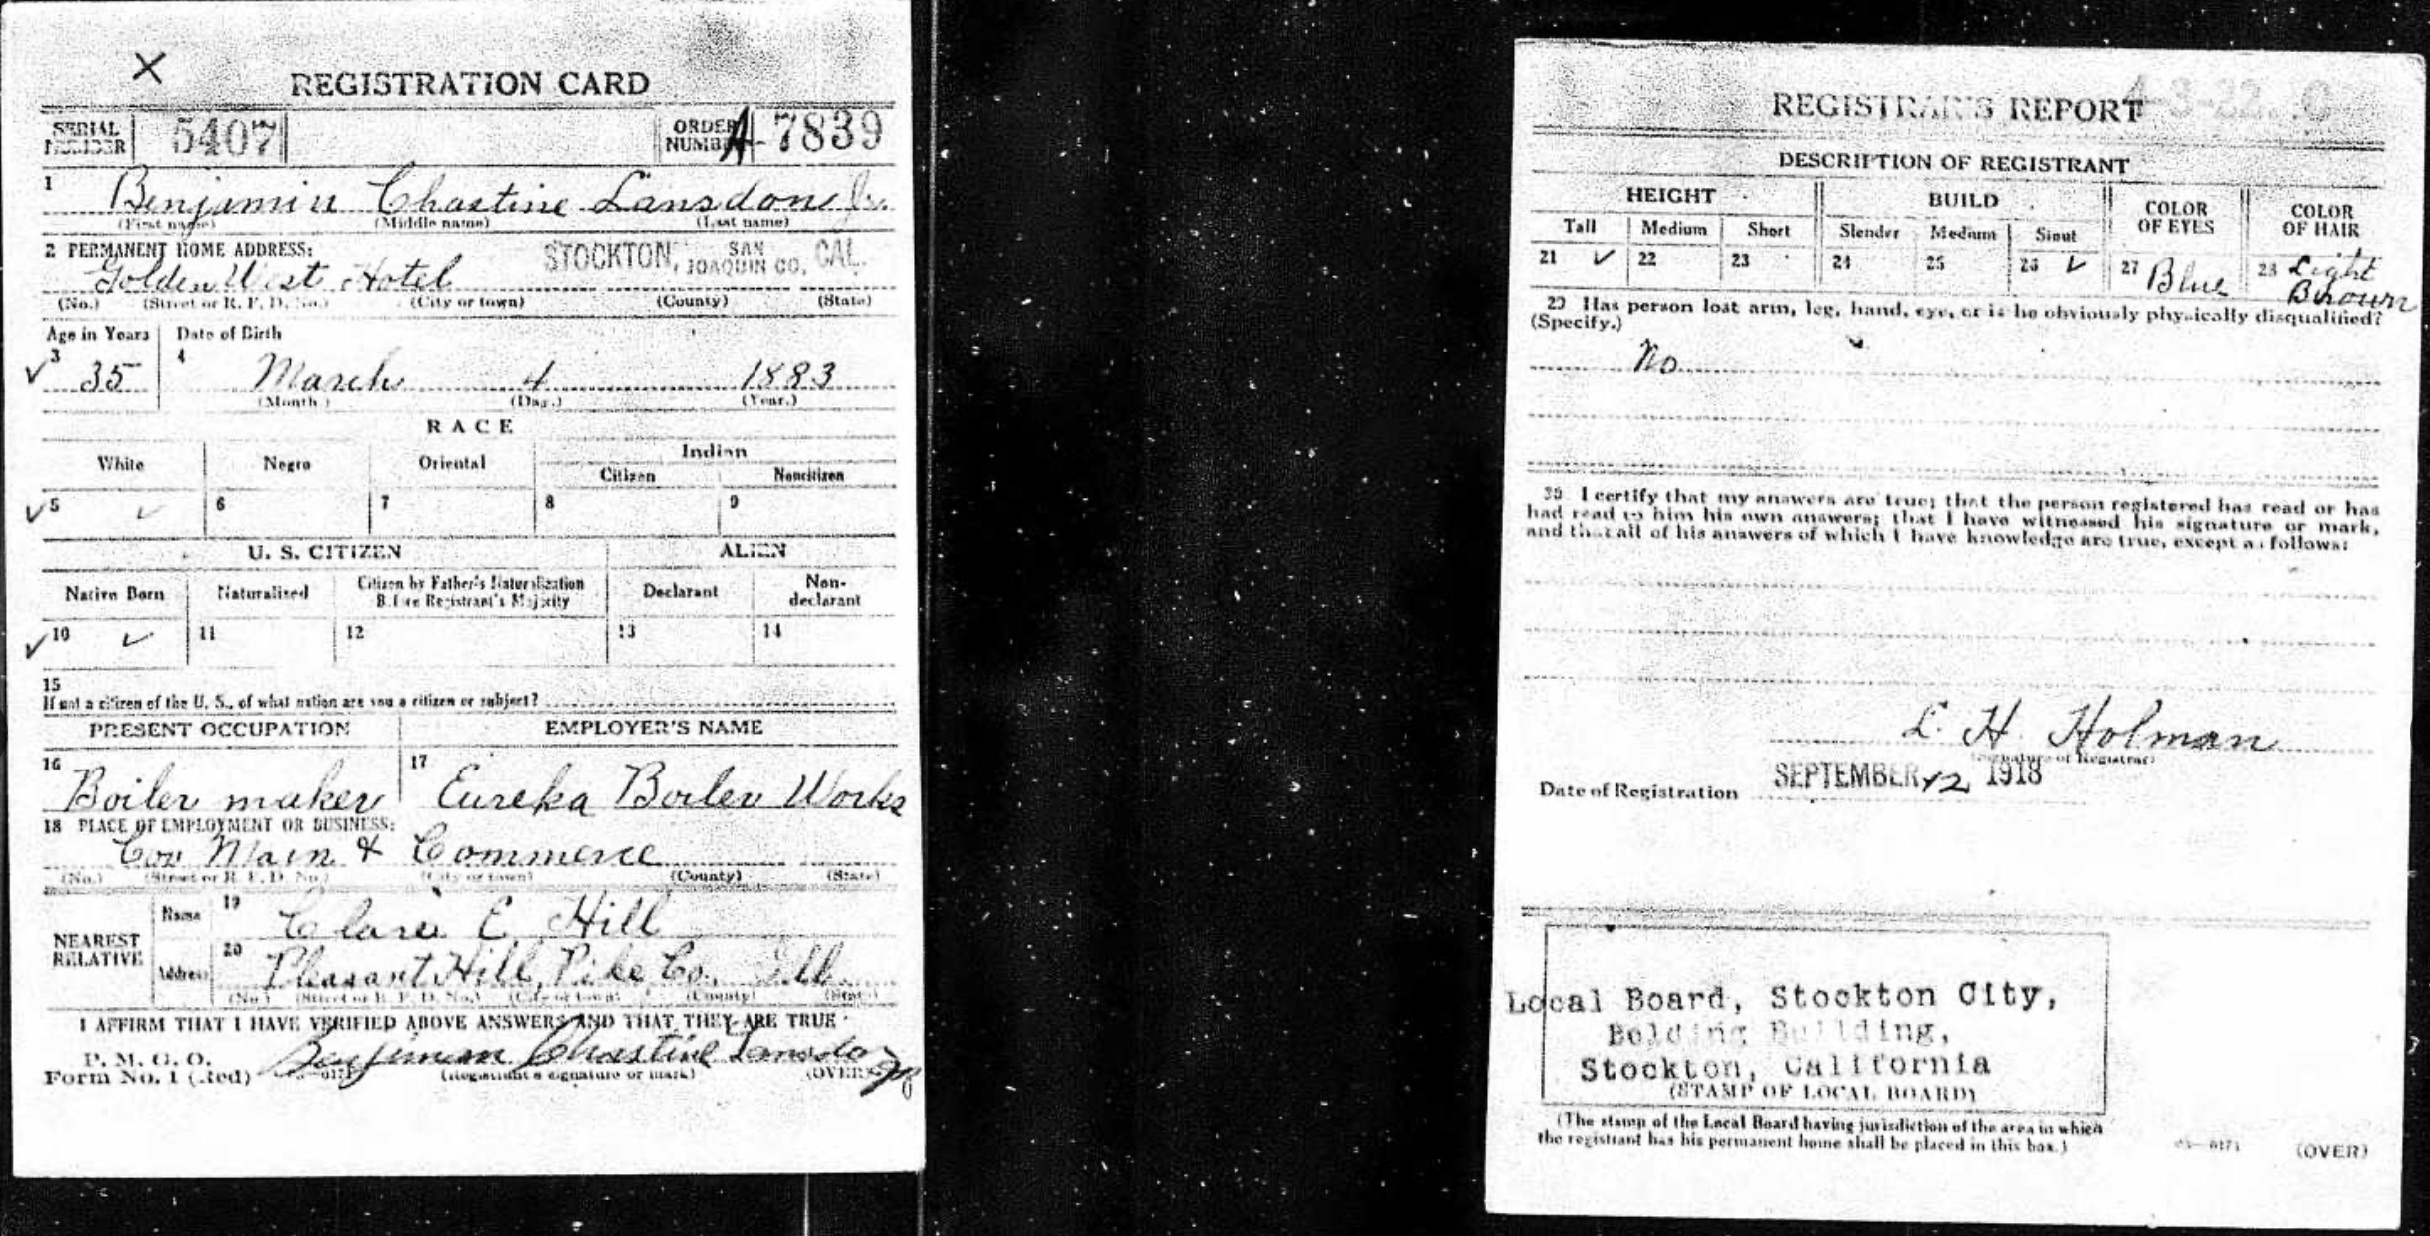 X
REGISTRATION CARD
SERIAL NUMBER 5407 ORDER NUMBER A-7839
1 Benjamin Chastine Lansdon Jr.
(First name) (Middle name) (Last name)
2 PERMANENT HOME ADDRESS: STOCKTON, SAN JOAQUIN CO, CAL.
Golden West Hotel
(No.) (Street or R. F. D. No.) (City or town) (County) (State)
Age in Years Date of Birth
3 35 4 March 4 1883
(Month.) (Day.) (Year.)
RACE
White Negro Oriental Indian
Citizen Noncitizen
5 ✓ 6 7 8 9
U. S. CITIZEN ALIEN
Native Born Naturalized Citizen by Father's Naturalization Before Registrant's Majority Declarant Non-declarant
10 ✓ 11 12 13 14
15
If not a citizen of the U. S., of what nation are you a citizen or subject?
PRESENT OCCUPATION EMPLOYER'S NAME
16 Boiler maker 17 Eureka Boiler Works
18 PLACE OF EMPLOYMENT OR BUSINESS:
Cor Main & Commerce
(No.) (Street or R. F. D. No.) (City or town) (County) (State)
NEAREST RELATIVE Name 19 Clara E Hill
Address 20 Pleasant Hill, Pike Co., Ill.
(No.) (Street or R. F. D. No.) (City or town) (County) (State)
I AFFIRM THAT I HAVE VERIFIED ABOVE ANSWERS AND THAT THEY ARE TRUE
P. M. G. O.
Form No. 1 (Red) Benjimin Chastine Lansdon Jr
(Registrant's signature or mark) (OVER)
REGISTRAR'S REPORT 4-3-22. C
DESCRIPTION OF REGISTRANT
HEIGHT BUILD COLOR OF EYES COLOR OF HAIR
Tall Medium Short Slender Medium Stout
21 ✓ 22 23 24 25 26 ✓ 27 Blue 28 Light Brown
29 Has person lost arm, leg, hand, eye, or is he obviously physically disqualified?
(Specify.)
No
30 I certify that my answers are true; that the person registered has read or has
had read to him his own answers; that I have witnessed his signature or mark,
and that all of his answers of which I have knowledge are true, except as follows:
L. H. Holman
(Signature of Registrar)
Date of Registration SEPTEMBER 12 1918
Local Board, Stockton City,
Belding Building,
Stockton, California
(STAMP OF LOCAL BOARD)
(The stamp of the Local Board having jurisdiction of the area in which
the registrant has his permanent home shall be placed in this box.)
(OVER)